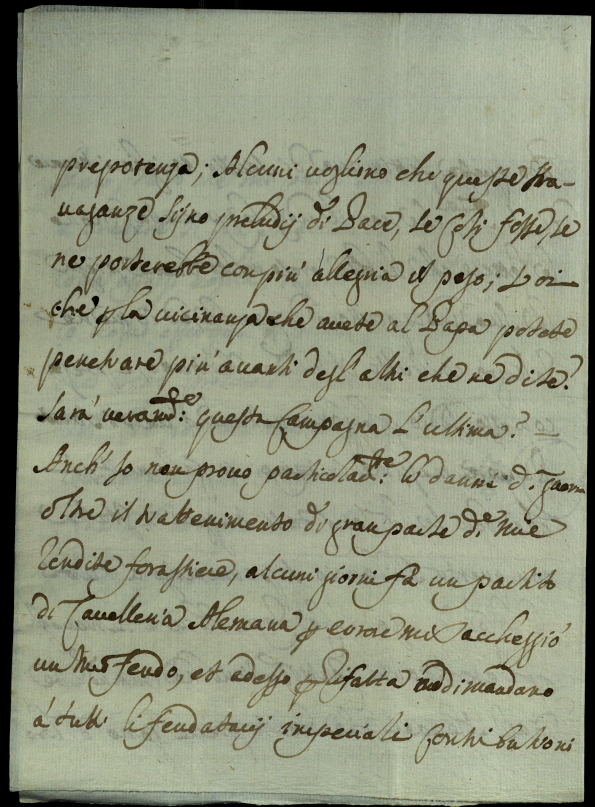 prepotenza; Alcuni vogliono che queste stra-
vaganze sijno preludij di Pace, se così fosse, se
ne porterebbe con più allegria il peso; Voi
che p la vicinanza che avete al Papa potete
penetrare più avanti degl'altri che ne dite?
sarà veram.te questa Campagna l'ultima?
Anch'Io non provo particolar.te li danni d. guerra
oltre il trattenimento di gran parte d.e mie
rendite forastiere, alcuni giorni fà un partito
di Cavelleria Alemana p errore mi sacchegiò
un mio feudo, et adesso p dimandano
á tutti li feudatarij imperiali Contributioni